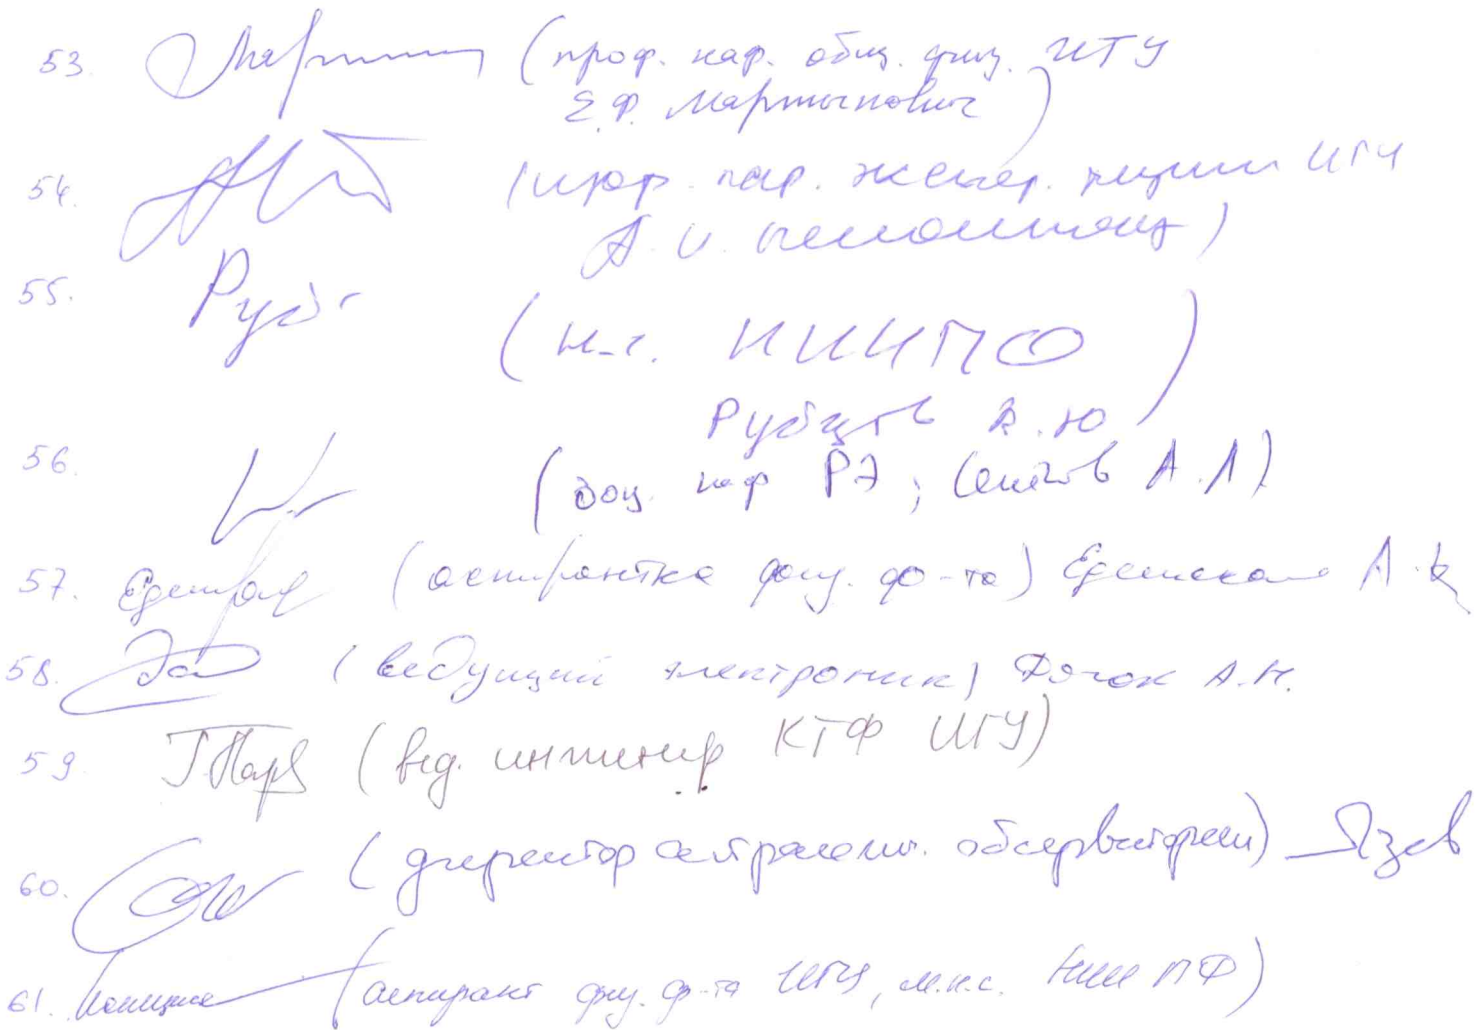 53. (проф. каф. общ. физ. ИГУ
Е.Ф. Мартынович)
54. (проф. каф. экспер. физики ИГУ
А. И.
55. Руб (н.с. НИИПФ)
Рубцов В.Ю
56. (доц. каф РЭ, Семёнов А.Л)
57. (аспирантка физ. ф-та) А.
58. (ведущий электроник) Дячок А.Н.
59. (вед. инженер КТФ ИГУ)
60. (директор астрономич. обсерватории) Язев
61. (аспирант физ. ф-та ИГУ, м.н.с. НИИ ПФ)